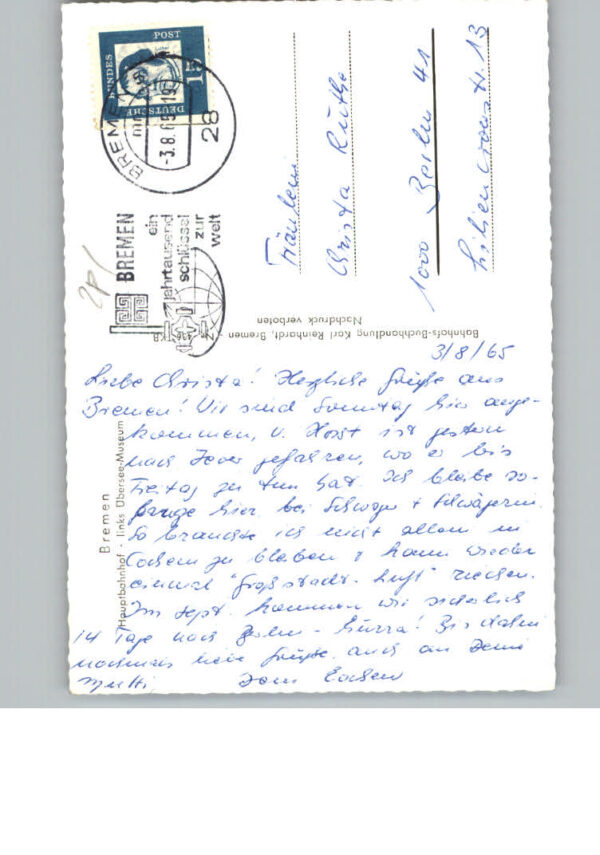 3/8/65
Liebe Christa! Herzliche Grüße aus
Bremen! Wir sind Sonntag hier ange-
kommen, u. Horst ist gestern
nach Jever gefahren, wo er bis
Freitag zu tun hat. Ich bleibe so-
lange hier bei Schwager + Schwägerin.
So brauchte ich nicht allein in
Cochem zu bleiben + kann wieder
einmal "Großstadt-Luft" riechen.
Im Sept. kommen wir sicherlich
14 Tage nach Berlin - hurra! Bis dahin
nochmals liebe Grüße auch an Deine
Mutti, Dein
Fräulein
Christa Rüthe
1000 Berlin 41
Liliencronstr. 13
DEUTSCHE BUNDESPOST
15
BREMEN
-3.8.65-
28
BREMEN
ein
jahrtausend
schlüssel
zur
welt
Bahnhofs-Buchhandlung Karl Reinhardt, Bremen -
Nachdruck verboten
Bremen
Hauptbahnhof - links Übersee-Museum